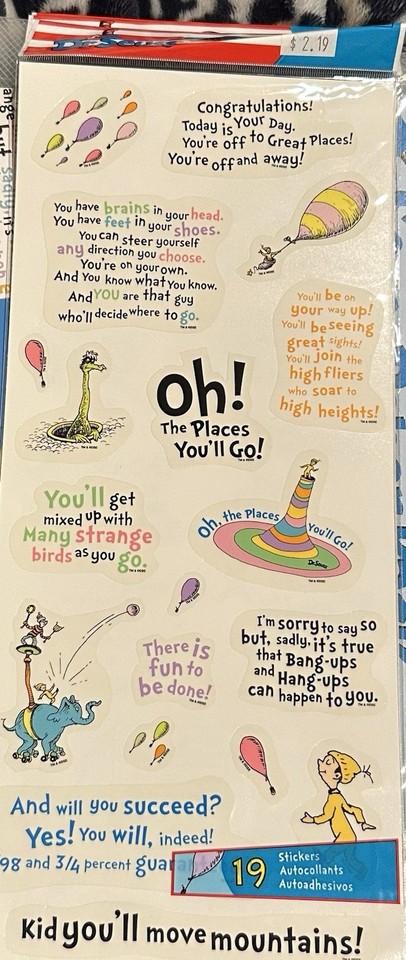 Dr. Seuss
$2.19
Congratulations!
Today is Your Day.
You're off to Great Places!
You're off and away!
You have brains in your head.
You have feet in your shoes.
You can steer yourself
any direction you choose.
You're on your own.
And You know what You know.
And YOU are that guy
who'll decide where to go.
You'll be on
your way up!
You'll be seeing
great sights!
You'll join the
high fliers
who soar to
high heights!
Oh!
The Places
You'll Go!
You'll get
mixed up with
Many strange
birds as you go.
Oh, the Places You'll Go!
Dr. Seuss
There is
fun to
be done!
I'm sorry to say so
but, sadly, it's true
that Bang-ups
and Hang-ups
can happen to you.
And will you succeed?
Yes! You will, indeed!
98 and 3/4 percent guar
19
Stickers
Autocollants
Autoadhesivos
Kid you'll move mountains!